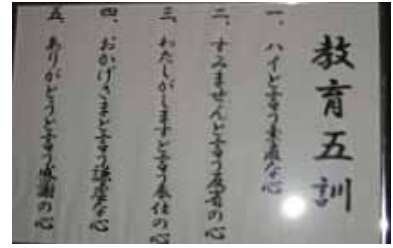 教育五訓
一、ハイと言う素直な心
二、すみませんと言う反省の心
三、わたしがしますと言う奉仕の心
四、おかげさまと言う謙虚な心
五、ありがとうと言う感謝の心